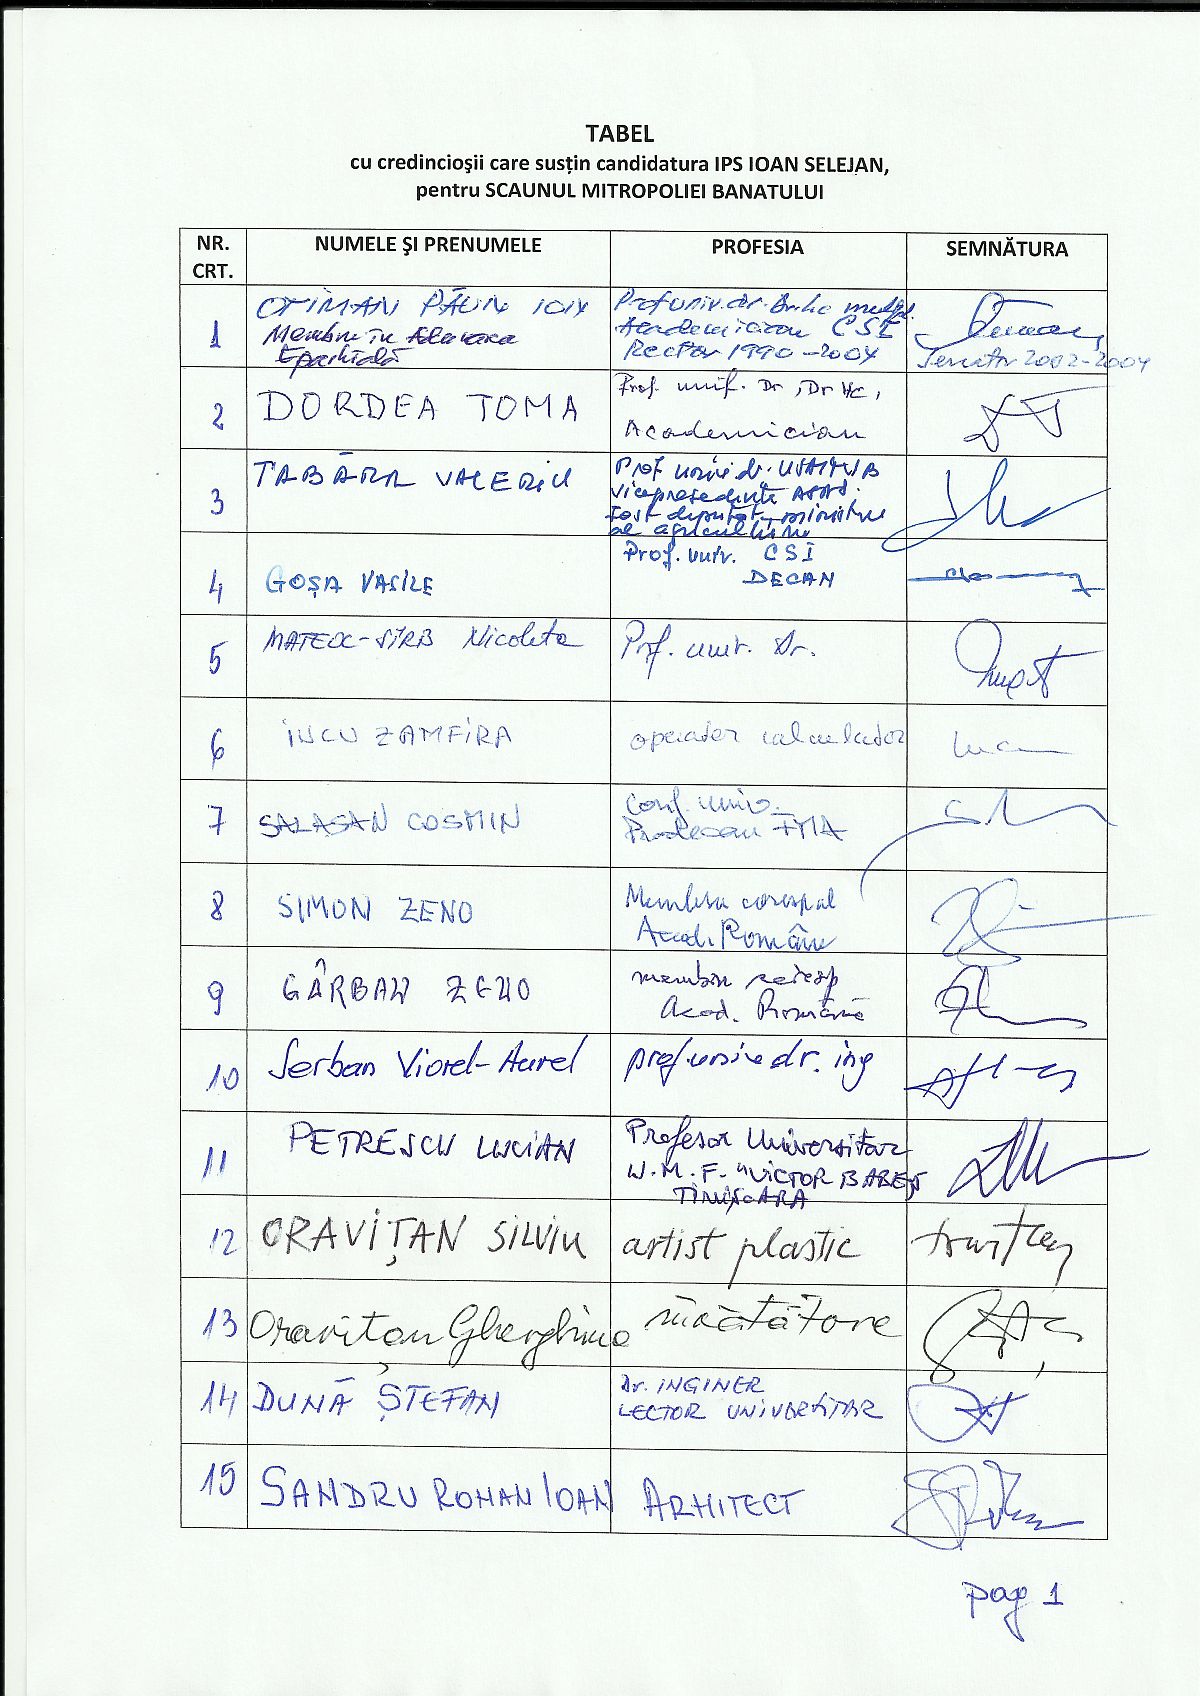 TABEL
cu credincioşii care susțin candidatura IPS IOAN SELEJAN,
pentru SCAUNUL MITROPOLIEI BANATULUI
NR. CRT.
NUMELE ŞI PRENUMELE
PROFESIA
SEMNĂTURA
1
OTIMAN PĂUN ION
Membru în
Eparhială
Prof univ. dr. Dr. hc multpl.
Academician CSI
Rector 1990-2004
Senator 2002-2004
2
DORDEA TOMA
Prof. univ. Dr, Dr Hc,
Academician
3
TABĂRĂ VALERIU
Prof univ dr. USAMVB
vicepreședinte ASAS.
fost deputat, ministru
al agriculturii
4
GOȘA VASILE
Prof. univ. CSI
DECAN
5
MATEOC-SÎRB Nicoleta
Prof. univ. Dr.
6
INCU ZAMFIRA
operator calculator
7
SALASAN COSMIN
Conf. univ.
Prodecan FMA
8
SIMON ZENO
Membru corespd
Acad. Române
9
GÂRBAN ZENO
membru coresp
Acad. Română
10
Serban Viorel-Aurel
prof. univ dr. ing
11
PETRESCU LUCIAN
Profesor Universitar
U.M.F. "VICTOR BABEȘ
TIMIȘOARA
12
ORAVIȚAN SILVIU
artist plastic
13
Oravițan Gherghina
învățătoare
14
DUNĂ ȘTEFAN
Dr. INGINER
LECTOR UNIVERSITAR
15
SANDRU ROMAN IOAN
ARHITECT
pag 1